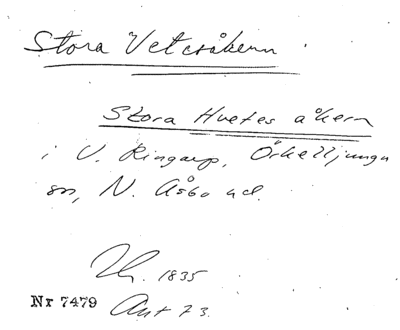 Stora Veteråkern
Stora Huetes åkern
i V. Ringarp, Örkelljunga
sn, N. Åsbo hd.
1835
Nr 7479 Akt 73.